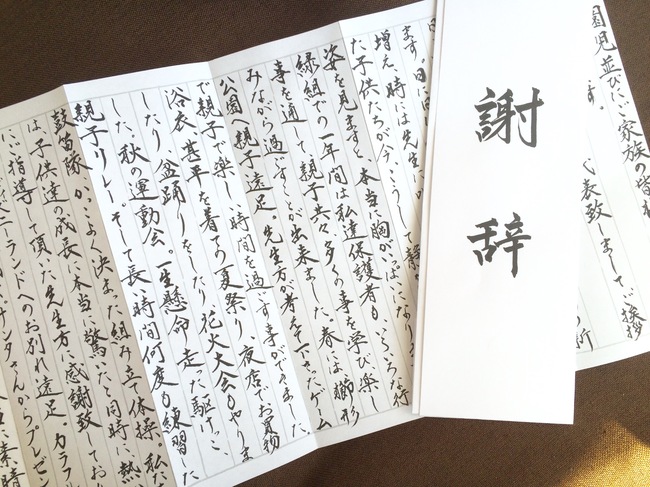 謝辞
園児並びにご家族の皆
す。
代表致しましてご挨拶
の所
ます。日に
増え、時には先生に
た子供たちが今、こうして静か
姿を見ますと、本当に胸がいっぱいになりま
緑組での一年間は私達保護者もいろいろな行
事を通して、親子共々多くの事を学び、楽し
みながら過ごすことが出来ました。春には、獅形
公園へ親子遠足。先生方が考えて下さったゲーム
で親子で楽しい時間を過ごす事ができました
浴衣、甚平を着ての夏祭り、夜店でお買物
したり、盆踊りをしたり、花火大会もやりま
した。秋の運動会。一生懸命走った駆けっこ
親子リレー。そして長い時間何度も練習した
鼓笛隊、かっこよく決まった組み立て体操、私た
は、子供達の成長に本当に驚いたと同時に、熱
にご指導して頂いた先生方に感謝致してお
ベニーランドへのお別れ遠足。カラフ
サンタさんからプレゼン
に素晴